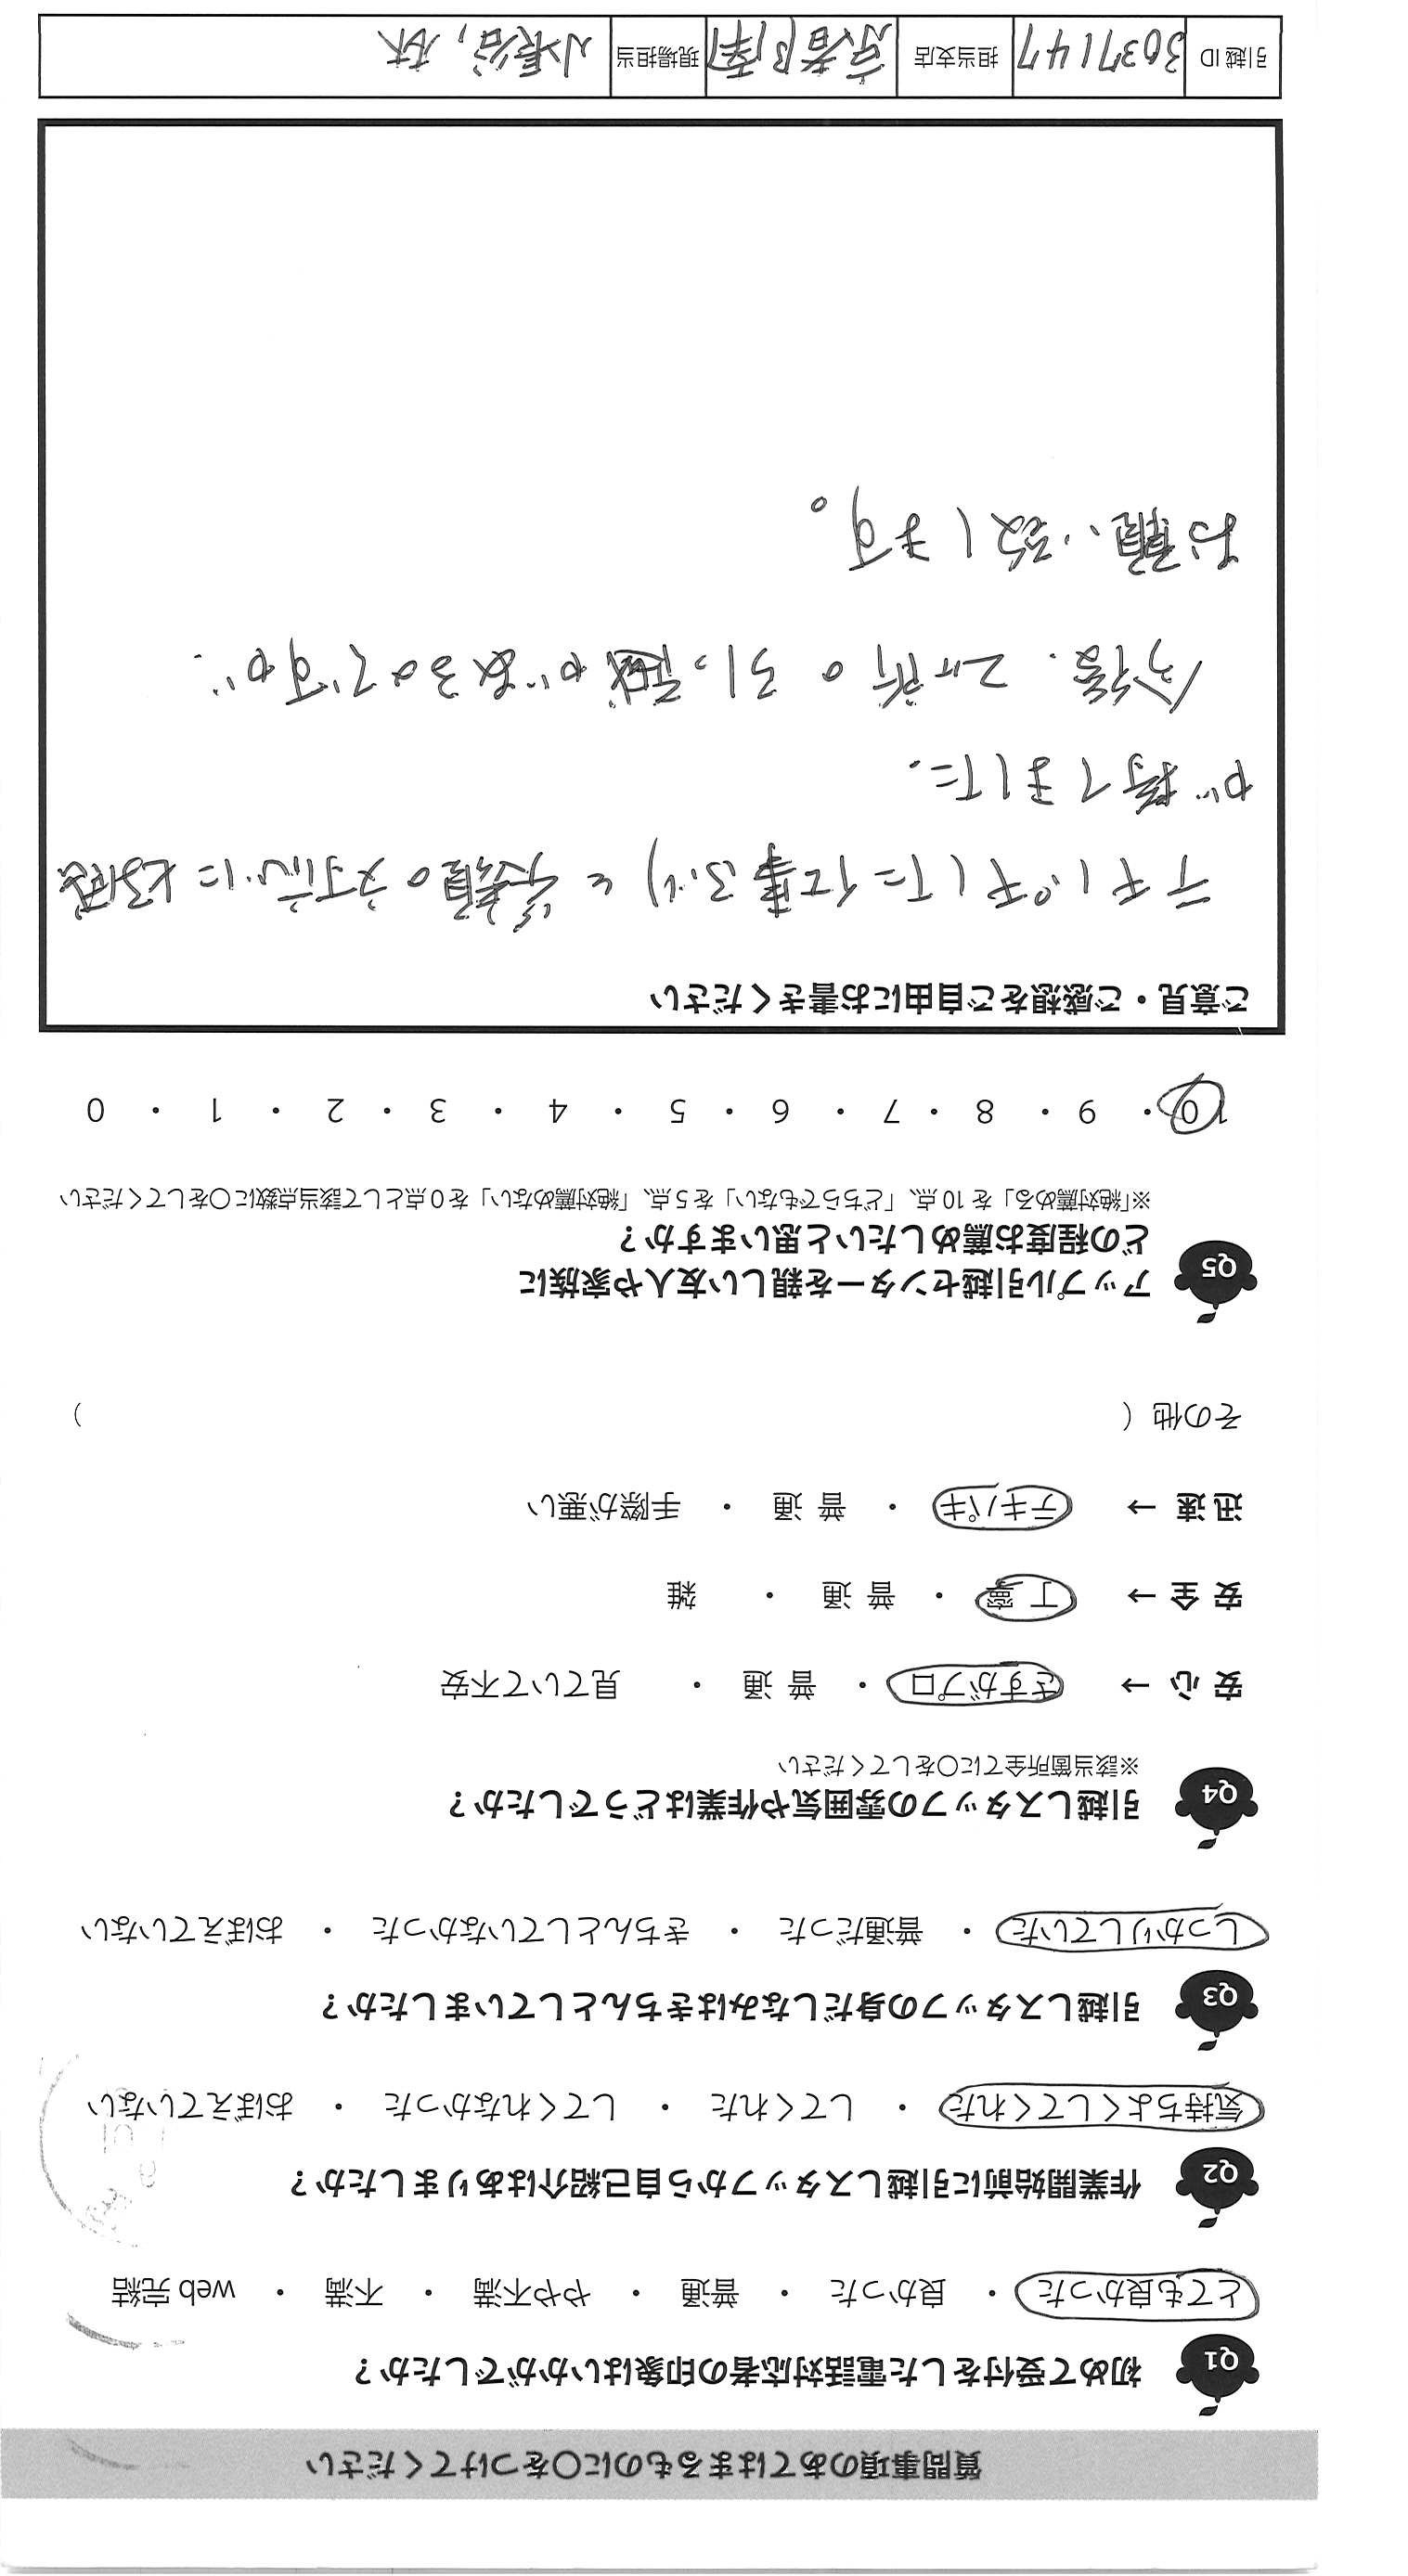 質問事項のあてはまるものに〇をつけてください
Q1 初めて受付をした電話対応者の印象はいかがでしたか？
とても良かった ・ 良かった ・ 普通 ・ やや不満 ・ 不満 ・ web 完結
Q2 作業開始前に引越しスタッフから自己紹介はありましたか？
気持ちよくしてくれた ・ してくれた ・ してくれなかった ・ おぼえていない
Q3 引越しスタッフの身だしなみはきちんとしていましたか？
しっかりしていた ・ 普通だった ・ きちんとしていなかった ・ おぼえていない
Q4 引越しスタッフの雰囲気や作業はどうでしたか？
※該当箇所全てに〇をしてください
安 心 → さすがプロ ・ 普 通 ・ 見ていて不安
安 全 → 丁 寧 ・ 普 通 ・ 雑
迅 速 → テキパキ ・ 普 通 ・ 手際が悪い
その他（ ）
Q5 アップル引越センターを親しい友人や家族に
どの程度お薦めしたいと思いますか？
※「絶対薦める」を 10 点、「どちらでもない」を 5 点、「絶対薦めない」を 0 点として該当点数に〇をしてください
10 ・ 9 ・ 8 ・ 7 ・ 6 ・ 5 ・ 4 ・ 3 ・ 2 ・ 1 ・ 0
ご意見・ご感想をご自由にお書きください
テキパキした仕事ぶりと笑顔の対応に好感
が持てました.
今後、2ヶ所の引っ越があるのですが.
お願い致します。
引越 ID 3037147 担当支店 京都南 現場担当 小長谷, 林